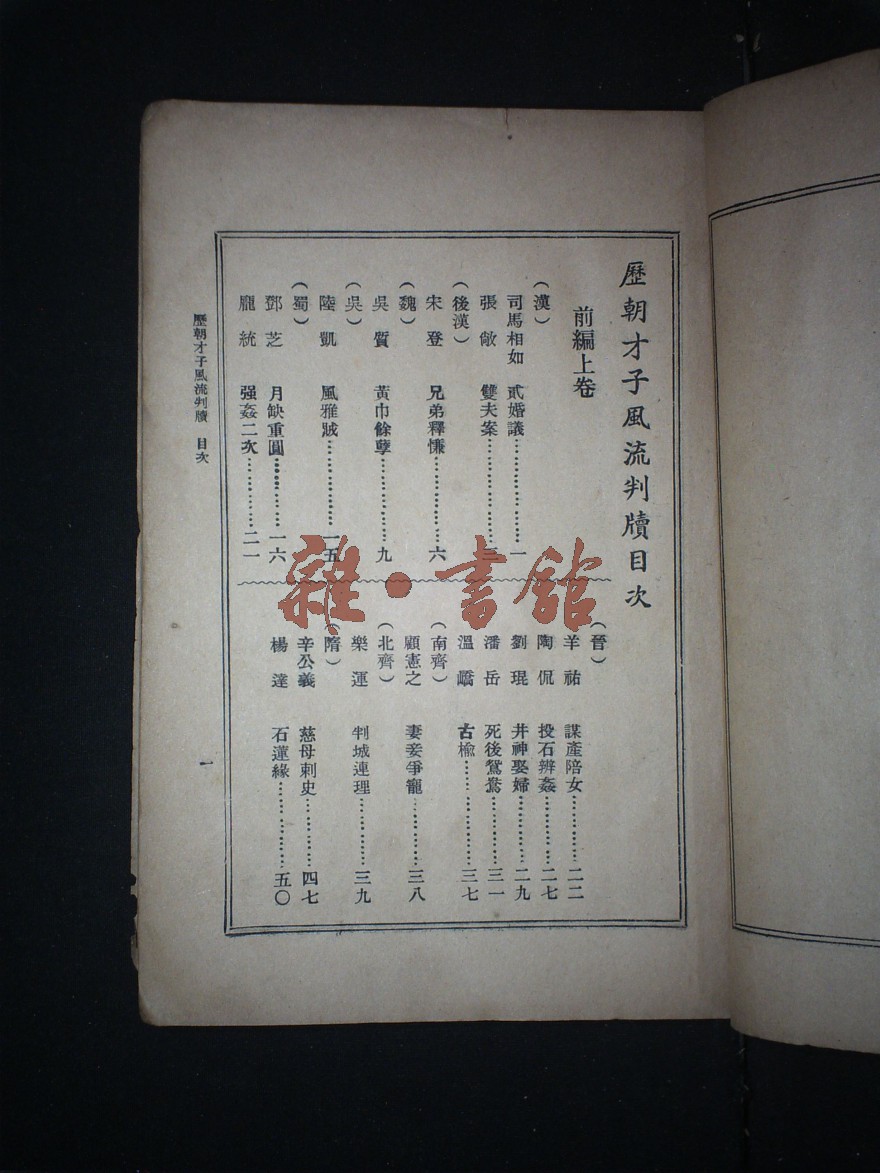 歷朝才子風流判牘目次
前編上卷
（漢）
司馬相如 貳婚議………………一
張敞 雙夫案………………三
（後漢）
宋登 兄弟釋慊………………六
（魏）
吳質 黃巾餘孽………………九
（吳）
陸凱 風雅賊………………一五
（蜀）
鄧芝 月缺重圓………………一六
龐統 强姦二次………………二一
（晉）
羊祜 謀產陪女………………二二
陶侃 投石辨姦………………二七
劉琨 井神娶婦………………二九
潘岳 死後鴛鴦………………三一
溫嶠 古楡………………三七
（南齊）
顧憲之 妻妾爭寵………………三八
（北齊）
樂運 判城連理………………三九
（隋）
辛公義 慈母刺史………………四七
楊達 石蓮緣………………五〇
歷朝才子風流判牘 目次
一
雜·書館